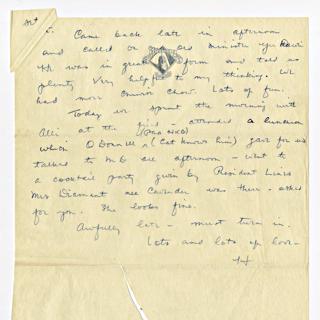 Came back late in afternoon
and called on old minister
He was in great form and told us
plenty. Very helpful to my thinking. We
had more Chinese chow. Lots of fun.
Today we spent the morning with
Alli at the - attended a luncheon
which O'Donnell (Cat knows him) gave for us
talked to MG all afternoon - went to
a cocktail party given by President
Mrs Diamond was there - asked
for you. She looks fine.
Awfully late - must turn in.
Lots and lots of love -